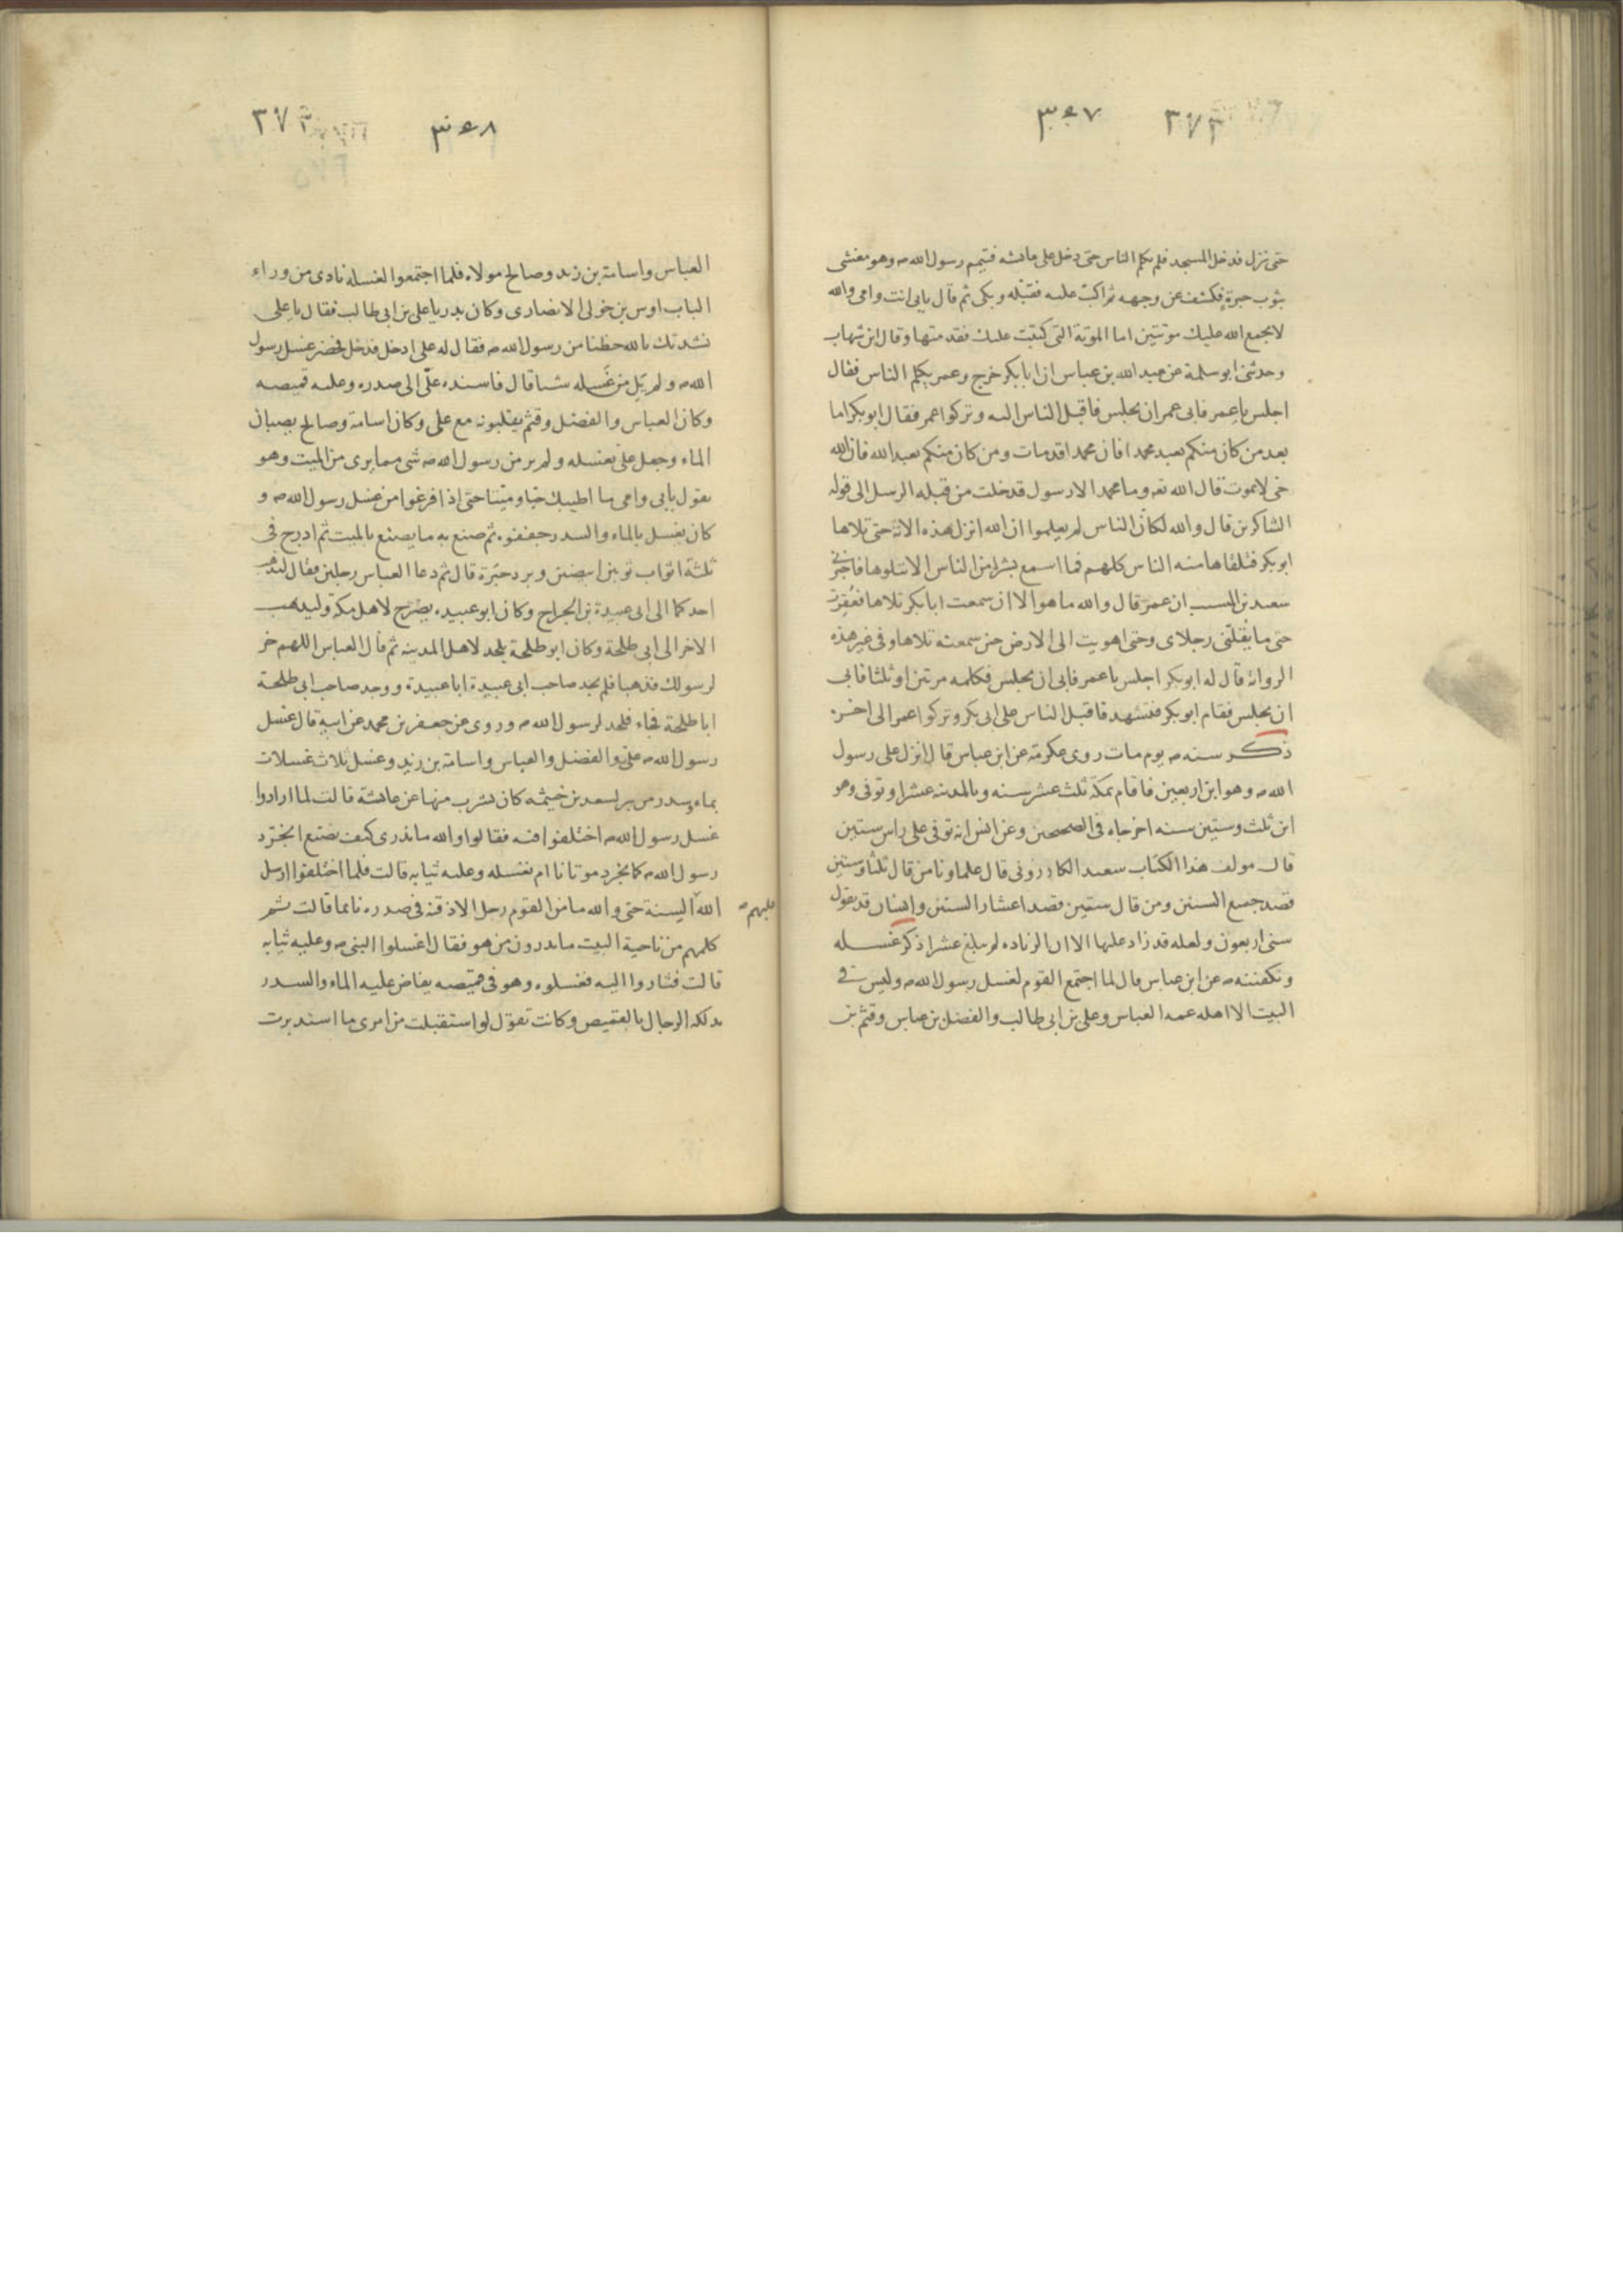 ٣٧٣ ٣٤٧
حتى نزل فدخل المسجد فلم يكلم الناس حتى دخل على عائشه فتيمم رسول الله صـ وهو مغشى
بثوب حبرة فكشف عن وجهه ثم اكب عليه فقبله وبكى ثم قال بابى انت وامى والله
لا يجمع الله عليك موتتين اما الموتة التى كتبت عليك فقد متها وقال ابن شهاب
وحدثنى ابو سلمة عن عبد الله بن عباس ان ابا بكر خرج وعمر يكلم الناس فقال
اجلس يا عمر فابى عمر ان يجلس فاقبل الناس اليه وتركوا عمر فقال ابو بكر اما
بعد من كان منكم يعبد محمدا فان محمدا قد مات ومن كان منكم يعبد الله فان الله
حى لا يموت قال الله تعـ وما محمد الا رسول قد خلت من قبله الرسل الى قوله
الشاكرين قال والله لكان الناس لم يعلموا ان الله انزل هذه الاية حتى تلاها
ابو بكر فتلقاها منه الناس كلهم فما اسمع بشرا من الناس الا يتلوها فاخبرنى
سعيد بن المسيب ان عمر قال والله ما هو الا ان سمعت ابا بكر تلاها فعقرت
حتى ما يقلنى رجلاى وحتى اهويت الى الارض حين سمعته تلاها وفى غير هذه
الرواية قال له ابو بكر اجلس يا عمر فابى ان يجلس فكلمه مرتين او ثلثا فابى
ان يجلس فقام ابو بكر فتشهد فاقبل الناس على ابى بكر وتركوا عمر الى اخره
ذكر سنه صـ يوم مات روى عكرمة عن ابن عباس قال انزل على رسول
الله صـ وهو ابن اربعين فاقام بمكة ثلث عشر سنه وبالمدينه عشرا وتوفى وهو
ابن ثلث وستين سنه اخرجاه فى الصحيحين وعن انس انه توفى على راس ستين
قال مولف هذا الكتاب سعيد الكازرونى قال علماونا من قال ثلثا وستين
قصد جميع السنين ومن قال ستين قصد اعشار الستين وانسان قد يقول
سنى اربعون ولعله قد زاد عليها الا ان الزياده لم يبلغ عشرا ذكر غسله
وتكفينه صـ عن ابن عباس قال لما اجتمع القوم لغسل رسول الله صـ وليس فى
البيت الا اهله عمه العباس وعلى بن ابى طالب والفضل بن عباس وقثم بن
٣٧٤ ٣٤٨
العباس واسامة بن زيد وصالح مولاه فلما اجتمعوا لغسله نادى من وراء
الباب اوس بن خولى الانصارى وكان بدريا على بن ابى طالب فقال يا على
نشدتك بالله حظنا من رسول الله صـ فقال له على ادخل فدخل فحضر غسل رسول
الله صـ ولم يل من غسله شيئا قال فاسنده على الى صدره وعليه قميصه
وكان العباس والفضل وقثم يقلبونه مع على وكان اسامة وصالح يصبان
الماء وجعل على يغسله ولم ير من رسول الله صـ شى مما يرى من الميت وهو
يقول بابى وامى ما اطيبك حيا وميتا حتى اذا فرغوا من غسل رسول الله صـ و
كان يغسل بالماء والسدر جففوه ثم صنع به ما يصنع بالميت ثم ادرج فى
ثلثة اثواب ثوبين ابيضين وبرد حبرة قال ثم دعا العباس رجلين فقال ليذهب
احدكما الى ابى عبيدة بن الجراح وكان ابو عبيده يضرح لاهل مكة وليذهب
الاخر الى ابى طلحة وكان ابو طلحة يلحد لاهل المدينه ثم قال العباس اللهم خر
لرسولك فذهبا فلم يجد صاحب ابى عبيدة ابا عبيدة ووجد صاحب ابى طلحة
ابا طلحة فجاء فلحد لرسول الله صـ وروى عن جعفر بن محمد عن ابيه قال غسل
رسول الله صـ على والفضل والعباس واسامة بن زيد وغسل ثلاث غسلات
بماء وسدر من بير لسعد بن خيثمه كان يشرب منها عن عائشة قالت لما ارادوا
غسل رسول الله صـ اختلفوا فيه فقالوا والله ما ندرى كيف نصنع انجرد
رسول الله صـ كما نجرد موتانا ام نغسله وعليه ثيابه قالت فلما اختلفوا ارسل
عليهم صـ
الله السنة حتى والله ما من القوم رجل الا ذقنه فى صدره نائما قالت ثم
كلمهم من ناحية البيت ما يدرون من هو فقال اغسلوا النبى صـ وعليه ثيابه
قالت فثاروا اليه فغسلوه وهو فى قميصه يفاض عليه الماء والسدر
يدلكه الرجال بالقميص وكانت تقول لو استقبلت من امرى ما استدبرت